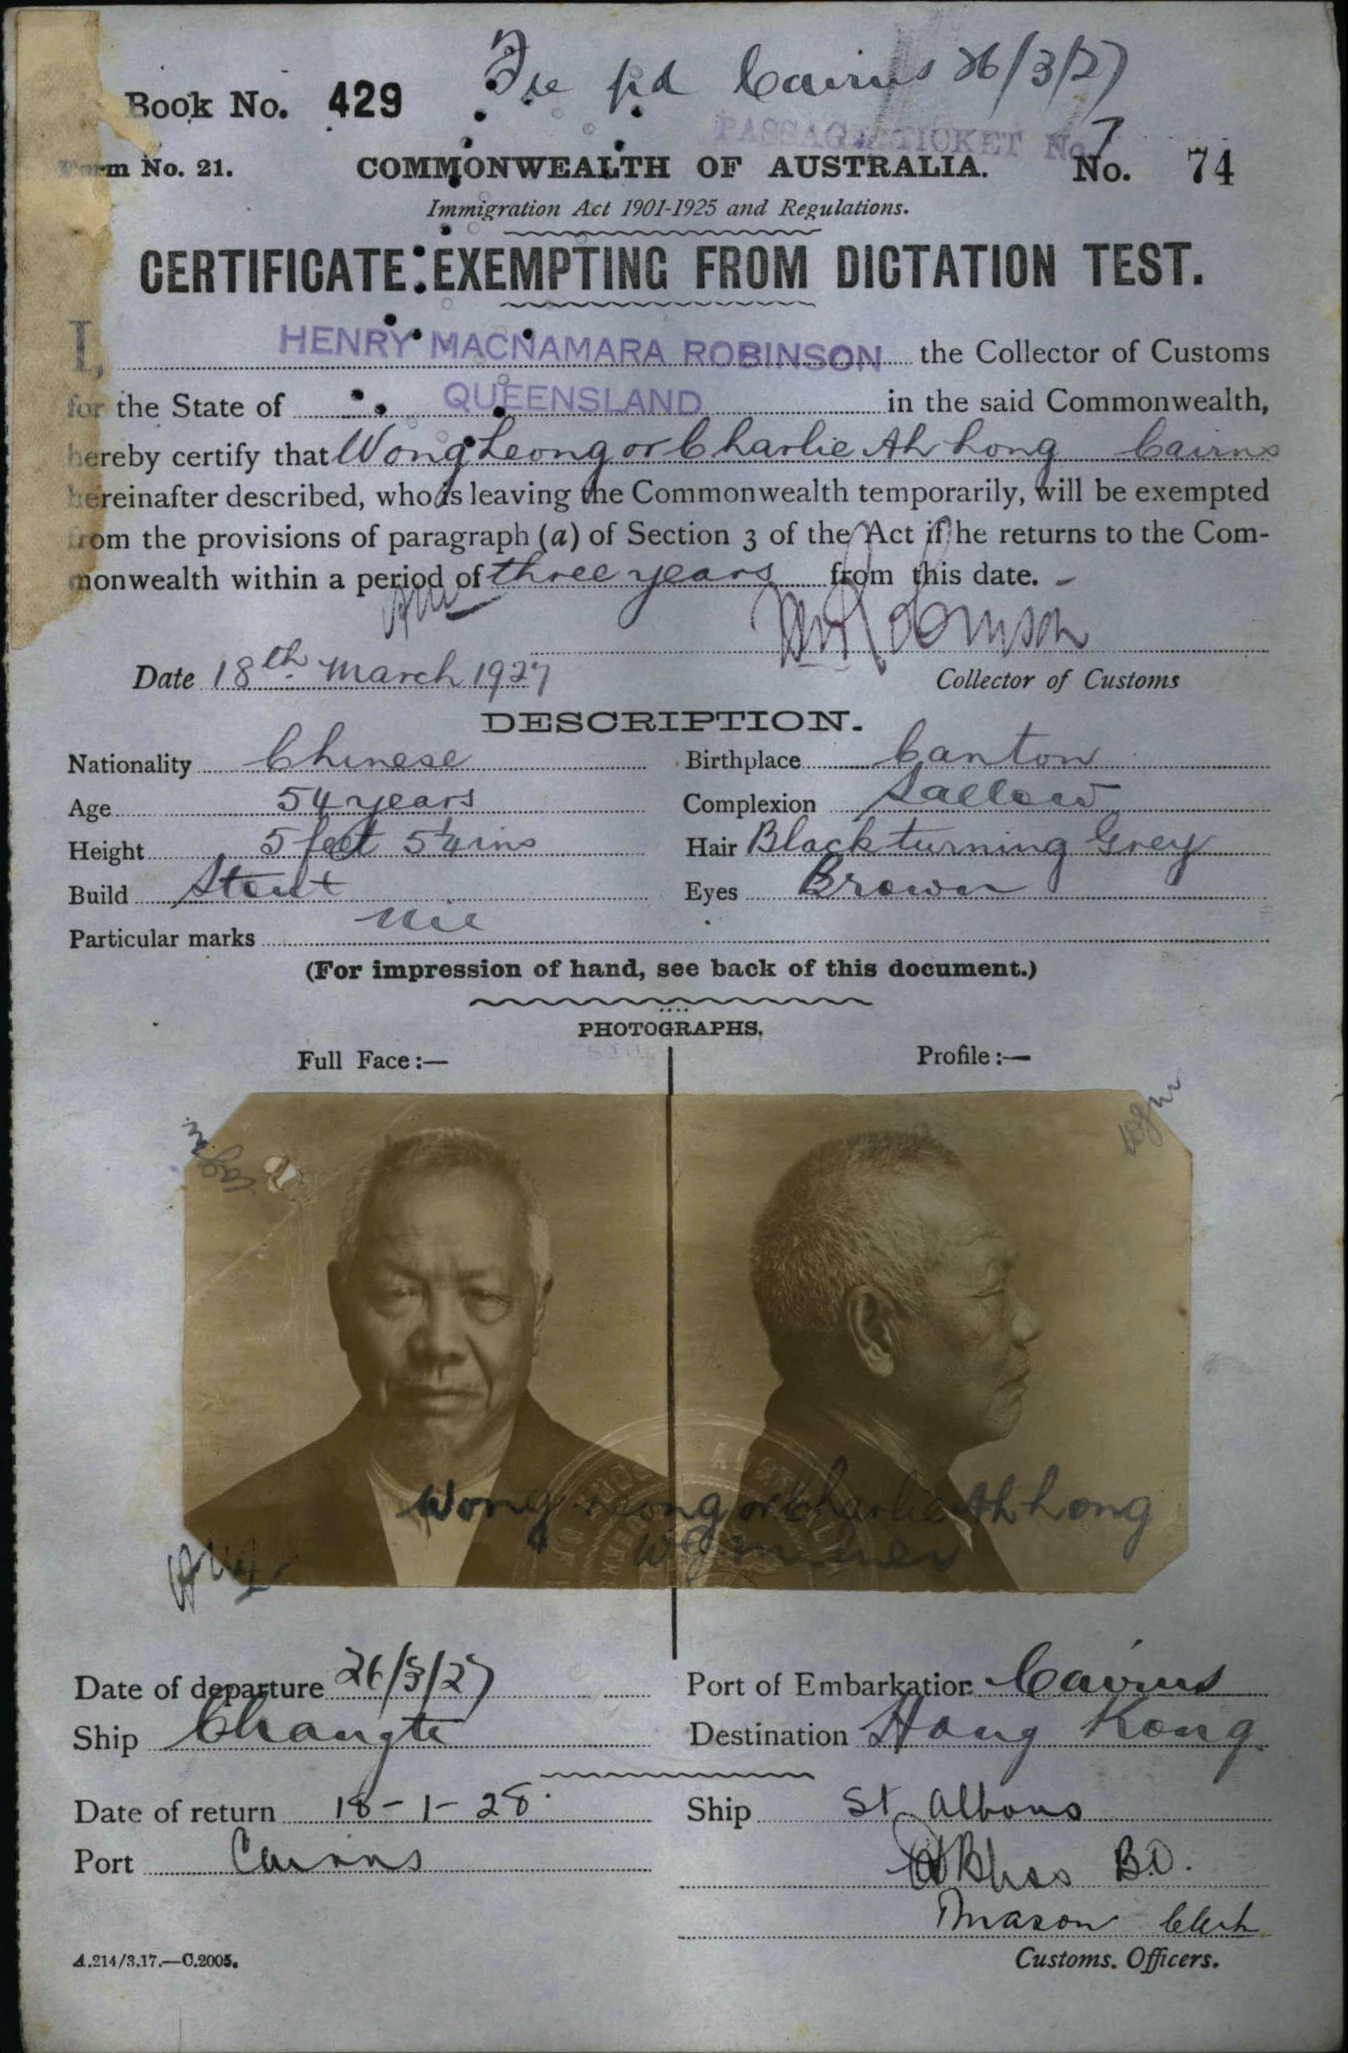 Fee pd Cairns 26/3/27
Book No. 429
PASSAGE TICKET No. 7
Form No. 21. COMMONWEALTH OF AUSTRALIA. No. 74
Immigration Act 1901-1925 and Regulations.
CERTIFICATE EXEMPTING FROM DICTATION TEST.
I, HENRY MACNAMARA ROBINSON the Collector of Customs
for the State of QUEENSLAND in the said Commonwealth,
hereby certify that Wong Leong or Charlie Ah hong Cairns
hereinafter described, who is leaving the Commonwealth temporarily, will be exempted
from the provisions of paragraph (a) of Section 3 of the Act if he returns to the Com-
monwealth within a period of three years from this date.
Robinson
Date 18th March 1927 Collector of Customs
DESCRIPTION.
Nationality Chinese Birthplace Canton
Age 54 years Complexion Sallow
Height 5 feet 5¼ ins Hair Black turning Grey
Build Stout Eyes Brown
Particular marks Nil
(For impression of hand, see back of this document.)
PHOTOGRAPHS.
Full Face:— Profile:—
Wong Leong or Charlie Ah hong
Date of departure 26/3/27 Port of Embarkation Cairns
Ship Changte Destination Hong Kong
Date of return 18-1-28 Ship St Albans
Port Cairns
Mason Clerk
A.214/3.17.—C.2005. Customs Officers.